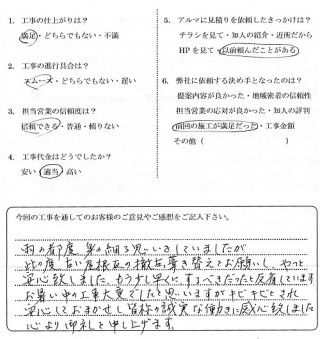 1. 工事の仕上がりは？
満足・どちらでもない・不満
2. 工事の進行具合は？
スムーズ・どちらでもない・遅い
3. 担当営業の信頼度は？
信頼できる・普通・頼りない
4. 工事代金はどうでしたか？
安い・適当・高い
5. アルマに見積りを依頼したきっかけは？
チラシを見て・知人の紹介・近所だから
HPを見て・以前頼んだことがある
6. 弊社に依頼する決め手となったのは？
提案内容が良かった・地域密着の信頼性
担当営業の応対が良かった・知人の評判
前回の施工が満足だった・工事金額
その他（　　　）
今回の工事を通してのお客様のご意見やご感想をご記入下さい。
雨の都度、身の細る思いをしていましたが
此の度、古い屋根瓦の撤去、葺き替えでお願いし、やっと
安心致しました。もう少し早くにするべきだったと反省しています
お暑い中の工事大変でしたと思いますがキビキビとされ
安心しておまかせし皆様の誠実な働きに感心致しました
心より御礼を申し上げます。